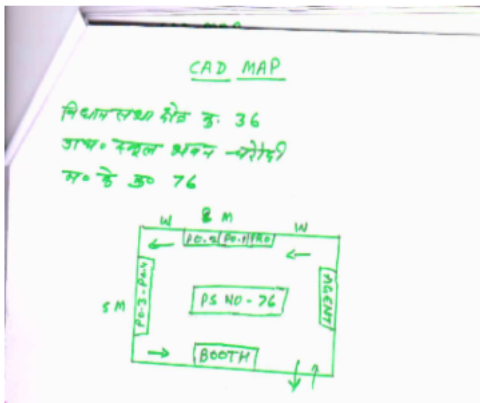 CAD MAP
विधान सभा क्षेत्र क्र. 36
स्कूल भवन
म० के क्र० 76
8 M
W W
PO-2 PO-1 PRO
5 M
PO-3 PO-4
PS NO-76
AGENT
BOOTH